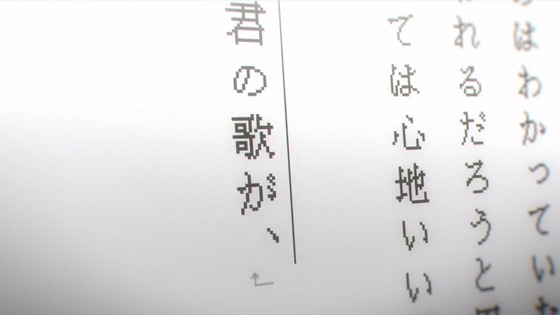 はわかっていた
れるだろうと思
ては心地いい
君の歌が、